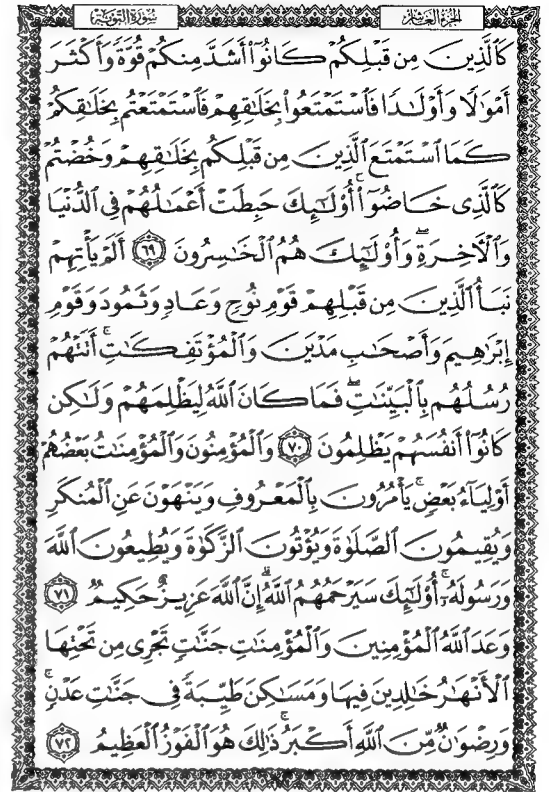 الجزء العاشر
سورة التوبة
كَٱلَّذِينَ مِن قَبۡلِكُمۡ كَانُوٓاْ أَشَدَّ مِنكُمۡ قُوَّةٗ وَأَكۡثَرَ
أَمۡوَٰلٗا وَأَوۡلَٰدٗا فَٱسۡتَمۡتَعُواْ بِخَلَٰقِهِمۡ فَٱسۡتَمۡتَعۡتُم بِخَلَٰقِكُمۡ
كَمَا ٱسۡتَمۡتَعَ ٱلَّذِينَ مِن قَبۡلِكُم بِخَلَٰقِهِمۡ وَخُضۡتُمۡ
كَٱلَّذِي خَاضُوٓاْۚ أُوْلَٰٓئِكَ حَبِطَتۡ أَعۡمَٰلُهُمۡ فِي ٱلدُّنۡيَا
وَٱلۡأٓخِرَةِۖ وَأُوْلَٰٓئِكَ هُمُ ٱلۡخَٰسِرُونَ ٦٩ أَلَمۡ يَأۡتِهِمۡ
نَبَأُ ٱلَّذِينَ مِن قَبۡلِهِمۡ قَوۡمِ نُوحٖ وَعَادٖ وَثَمُودَ وَقَوۡمِ
إِبۡرَٰهِيمَ وَأَصۡحَٰبِ مَدۡيَنَ وَٱلۡمُؤۡتَفِكَٰتِۚ أَتَتۡهُمۡ
رُسُلُهُم بِٱلۡبَيِّنَٰتِۖ فَمَا كَانَ ٱللَّهُ لِيَظۡلِمَهُمۡ وَلَٰكِن
كَانُوٓاْ أَنفُسَهُمۡ يَظۡلِمُونَ ٧٠ وَٱلۡمُؤۡمِنُونَ وَٱلۡمُؤۡمِنَٰتُ بَعۡضُهُمۡ
أَوۡلِيَآءُ بَعۡضٖۚ يَأۡمُرُونَ بِٱلۡمَعۡرُوفِ وَيَنۡهَوۡنَ عَنِ ٱلۡمُنكَرِ
وَيُقِيمُونَ ٱلصَّلَوٰةَ وَيُؤۡتُونَ ٱلزَّكَوٰةَ وَيُطِيعُونَ ٱللَّهَ
وَرَسُولَهُۥٓۚ أُوْلَٰٓئِكَ سَيَرۡحَمُهُمُ ٱللَّهُۗ إِنَّ ٱللَّهَ عَزِيزٌ حَكِيمٞ ٧١
وَعَدَ ٱللَّهُ ٱلۡمُؤۡمِنِينَ وَٱلۡمُؤۡمِنَٰتِ جَنَّٰتٖ تَجۡرِي مِن تَحۡتِهَا
ٱلۡأَنۡهَٰرُ خَٰلِدِينَ فِيهَا وَمَسَٰكِنَ طَيِّبَةٗ فِي جَنَّٰتِ عَدۡنٖۚ
وَرِضۡوَٰنٞ مِّنَ ٱللَّهِ أَكۡبَرُۚ ذَٰلِكَ هُوَ ٱلۡفَوۡزُ ٱلۡعَظِيمُ ٧٢